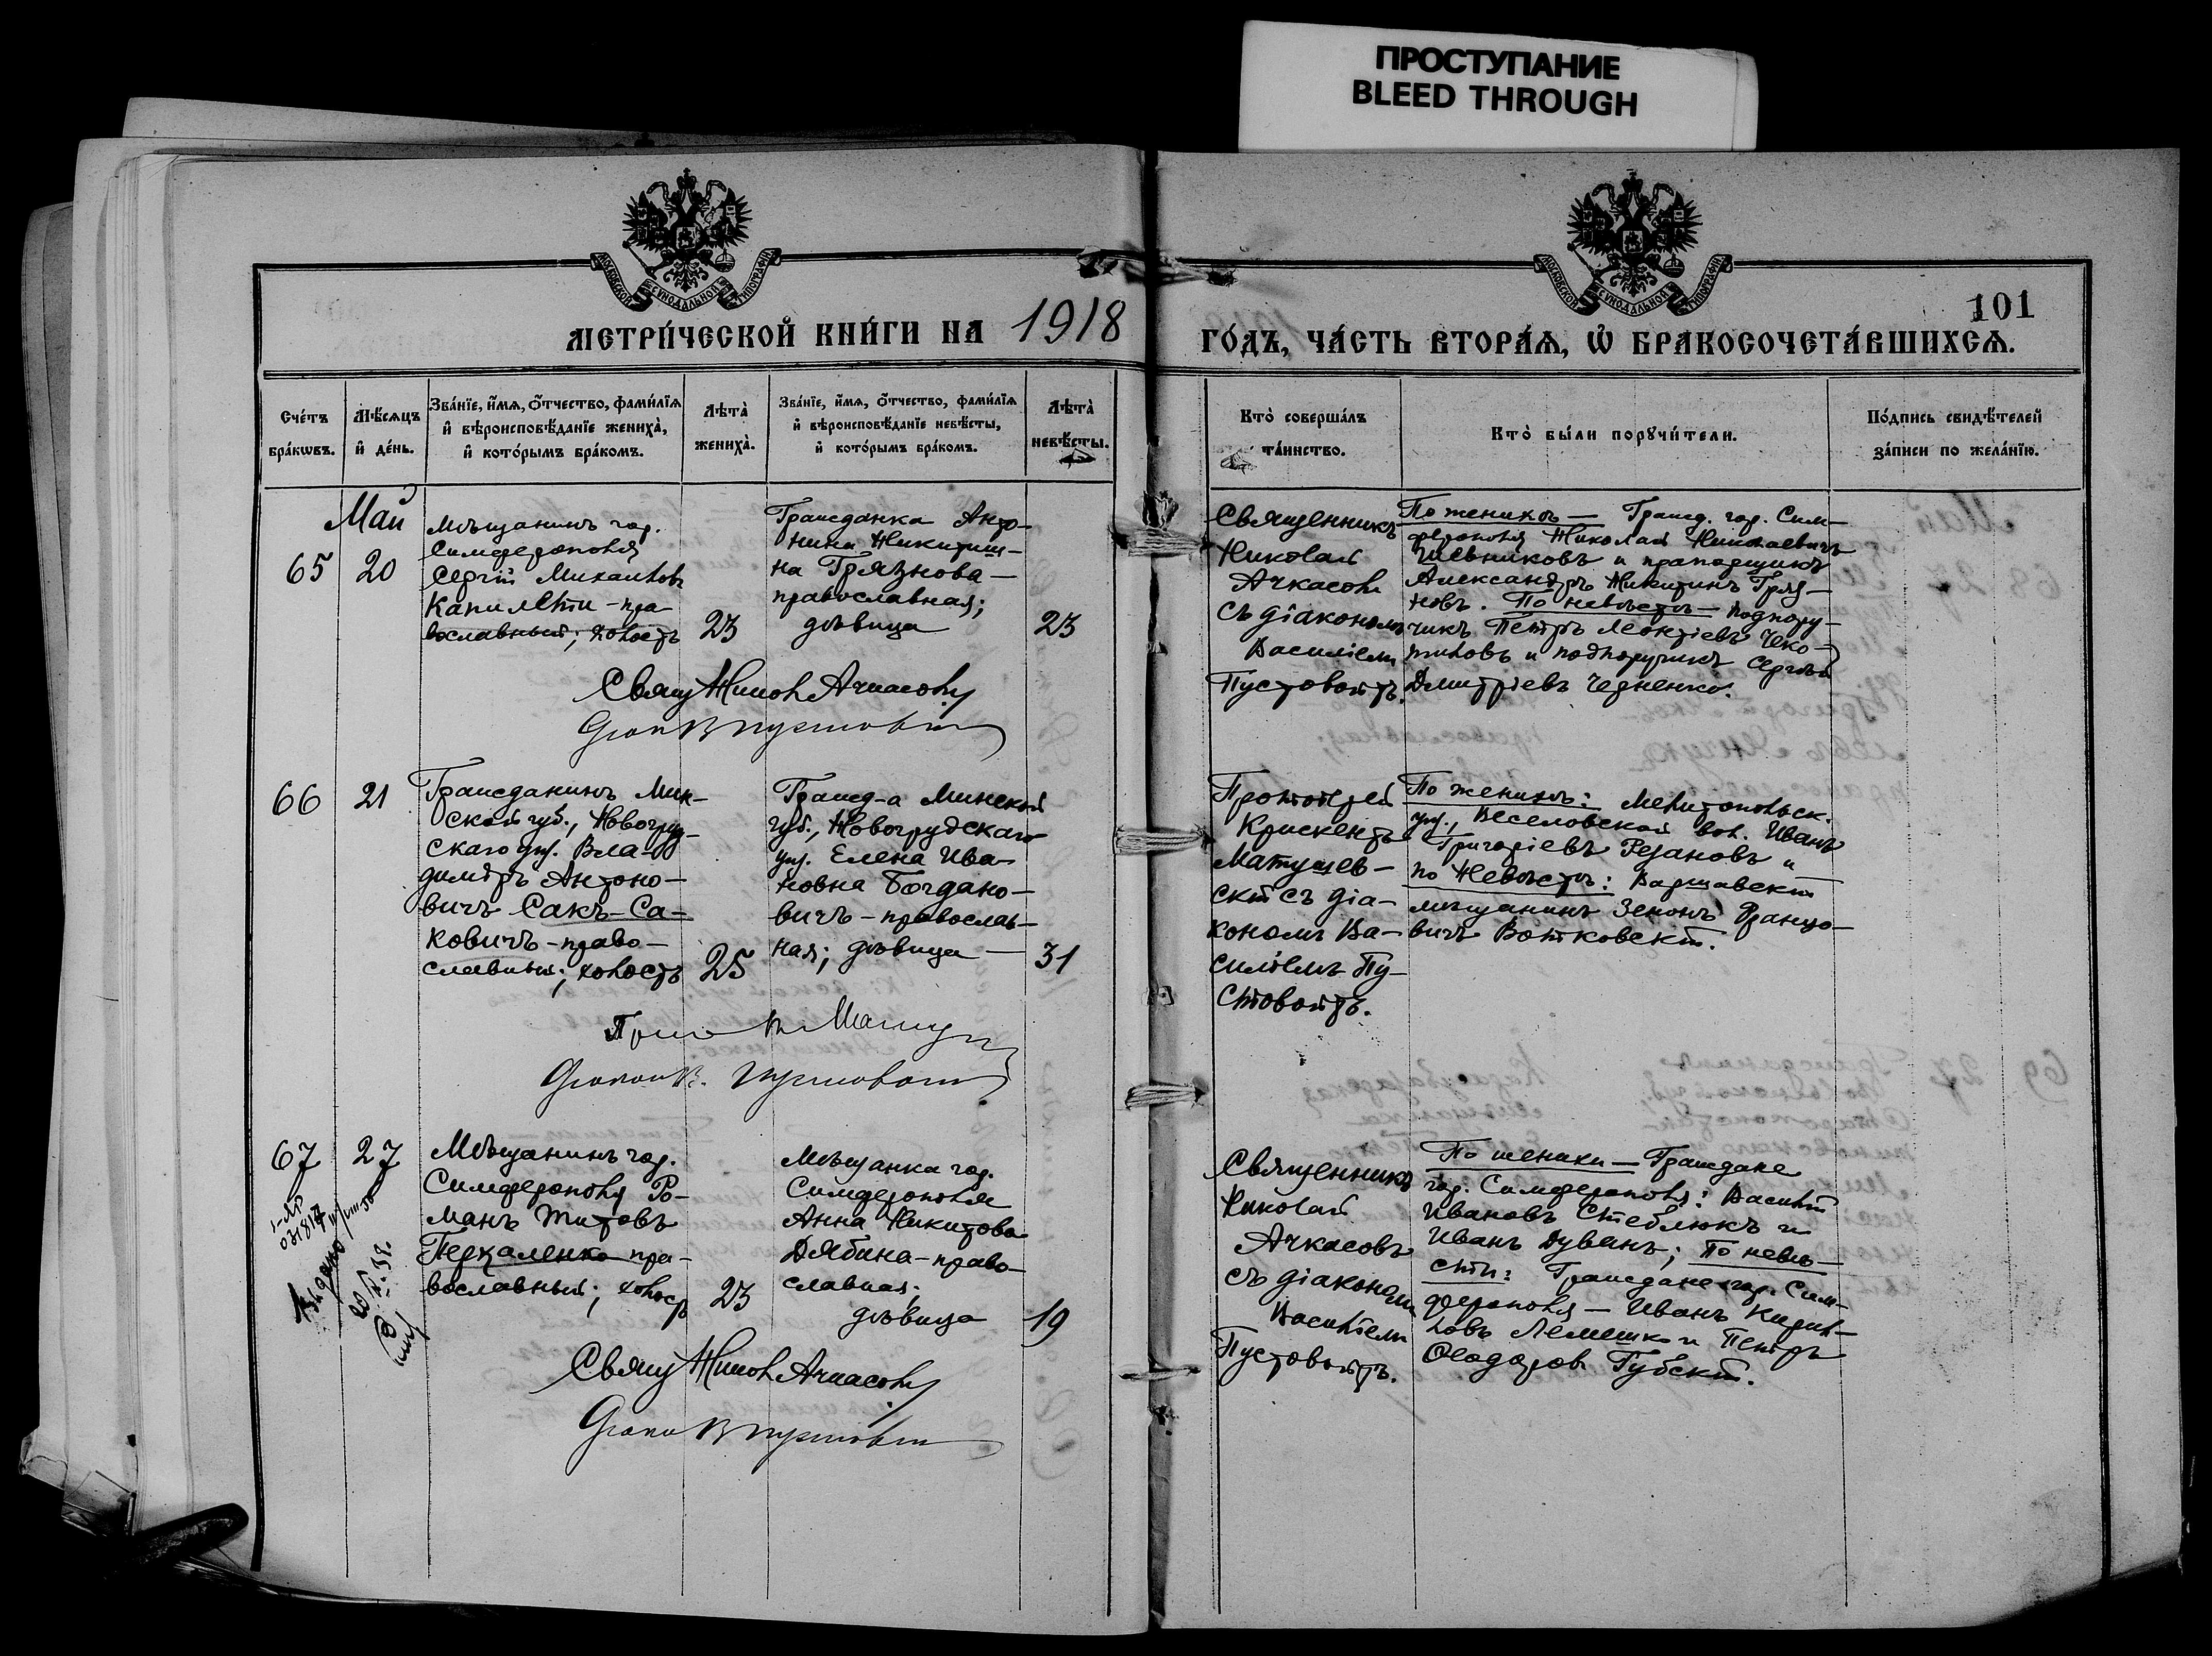 ПРОСТУПАНИЕ
BLEED THROUGH
МОСКОВСКОЙ СѴНОДАЛЬНОЙ ТИПОГРАФІИ
МОСКОВСКОЙ СѴНОДАЛЬНОЙ ТИПОГРАФІИ
101
МЕТРИ́ЧЕСКОЙ КНИ́ГИ НА 1918 ГО́ДЪ, ЧА́СТЬ ВТОРА́Ѧ, Ѡ҆ БРАКОСОЧЕТА́ВШИХСѦ.
Сче́тъ бра́кѡвъ.
Мѣ́сѧцъ и҆ де́нь.
Зва́нїе, и҆́мѧ, ѻ҆́тчество, фами́лїѧ и҆ вѣроисповѣ́данїе жениха̀, и҆ кото́рымъ бра́комъ.
Лѣта̀ жениха̀.
Зва́нїе, и҆́мѧ, ѻ҆́тчество, фами́лїѧ и҆ вѣроисповѣ́данїе невѣ́сты, и҆ кото́рымъ бра́комъ.
Лѣта̀ невѣ́сты.
Кто̀ соверша́лъ та́инство.
Кто̀ бы́ли порꙋчи́тели.
По́дпись свидѣ́телей за́писи по жела́нїю.
Май
65
20
Мѣщанинъ гор.
Симферополя
Сергій Михаиловъ
Капилети - пра-
вославный; холостъ
23
Гражданка Анто-
нина Никитиш-
на Грязнова —
православная;
дѣвица
23
Священникъ
Николай
Ачкасовъ
съ діакономъ
Василіемъ
Пустовойтъ.
По женихѣ — Гражд. гор. Сим-
ферополя Николай Николаевичъ
и прапорщикъ
Александръ Никитинъ Гряз-
новъ. По невѣстѣ — подпору-
чикъ Петръ Леонтіевъ Чеко-
тиловъ и подпоручикъ Сергѣй
Дмитріевъ Черненко.
Свящ Никол Ачкасовъ
Діак В Пустовойт
66
21
Гражданинъ Мин-
ской губ., Новогруд-
скаго уѣз. Вла-
димиръ Антоно-
вичъ Сакъ-Са-
ковичъ - право-
славный; холостъ
25
Гражд-а Минской
губ., Новогрудскаго
уѣз. Елена Ива-
новна Богдано-
вичъ - православ-
ная; дѣвица —
31
Протоіерей
Крискентъ
Матушев-
скій съ діа-
кономъ Ва-
силіемъ Пу-
стовойтъ.
По женихѣ: Мелитопольск.
уѣз., Веселовской вол. Иванъ
Григоріевъ Резановъ и
по невѣстѣ: Варшавскій
мѣщанинъ Зенонъ Францо-
вичъ Вотковскій.
Діакон В. Пустовойт
67
27
Мѣщанинъ гор.
Симферополя Ро-
манъ Титовъ
Перкаленко пра-
вославный; холост
23
Мѣщанка гор.
Симферополя
Анна Никитова
Дябина - право-
славная;
дѣвица
19
Священникъ
Николай
Ачкасовъ
съ діакономъ
Василіемъ
Пустовойтъ.
По женихѣ — Граждане
гор. Симферополя: Василій
Ивановъ Стеблюкъ и
Иванъ Дуванъ; По невѣ-
стѣ: Граждане гор. Сим-
ферополя — Иванъ Кирил-
ловъ Лемешко и Петръ
Ѳеодоров Губскій.
Выдано
Свящ Никол Ачкасовъ
Діакон В Пустовойт